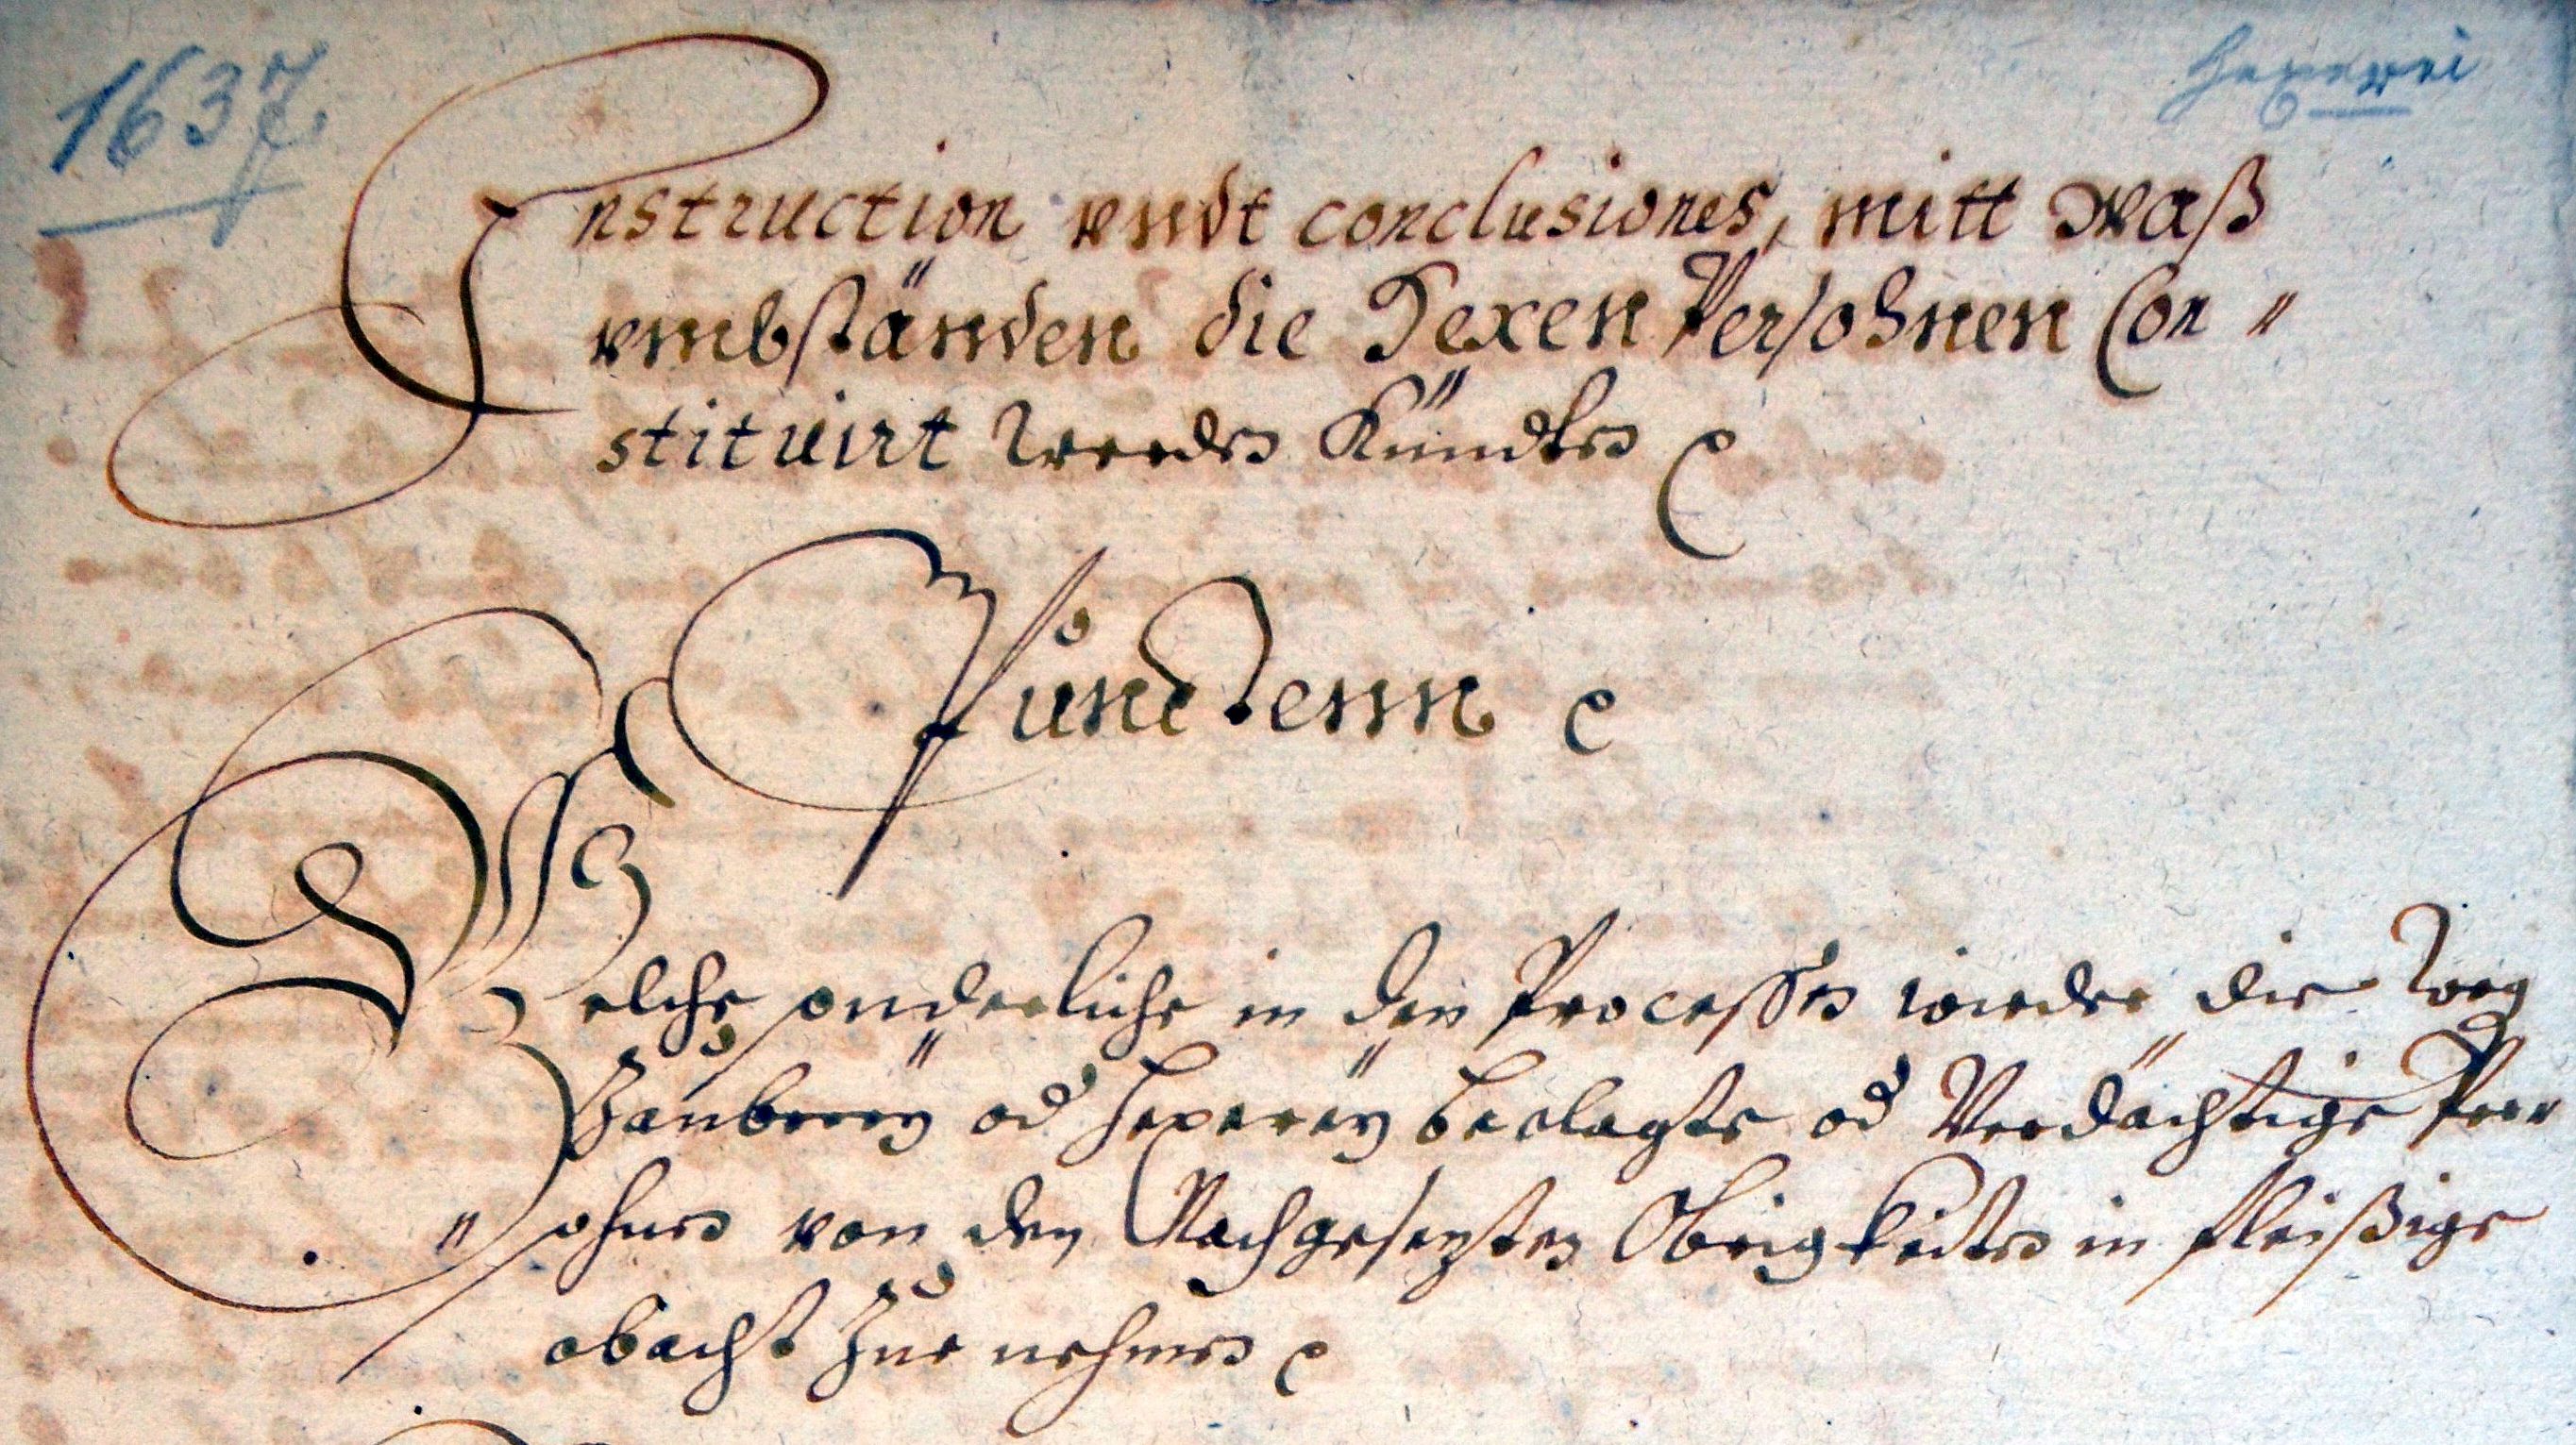 1637
Hexerei
Instruction vnndt conclusiones, mitt waß
vmbständen die Hexen Persohnen Con"
stituirt werden Kündten
Puncdenn
Welche sonderliche in den Processen wieder die weg
Zauberey od Hexerey beclagte od Verdächtige Per"
"sohnen von den Nachgesezten Obrigkeiten in fleißige
obacht Zue nehmen